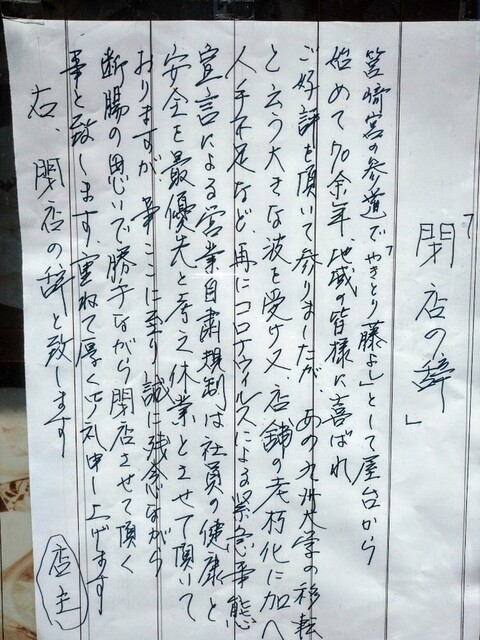 「閉店の辞」
筥崎宮の参道で「やきとり藤よし」として屋台から
始めて70余年、地域の皆様に喜ばれ
ご好評を頂いて参りましたが、あの九州大学の移転
と云う大きな波を受け、又、店舗の老朽化に加へ
人手不足など、再にコロナウィルスによる緊急事態
宣言による営業自粛規制は社員の健康と
安全を最優先と考え休業とさせて頂いて
おりますが、事ここに至り誠に残念ながら
断腸の思いで勝手ながら閉店させて頂く
事と致します、重ねて厚く御礼申し上げます
右、閉店の辞と致します
店主